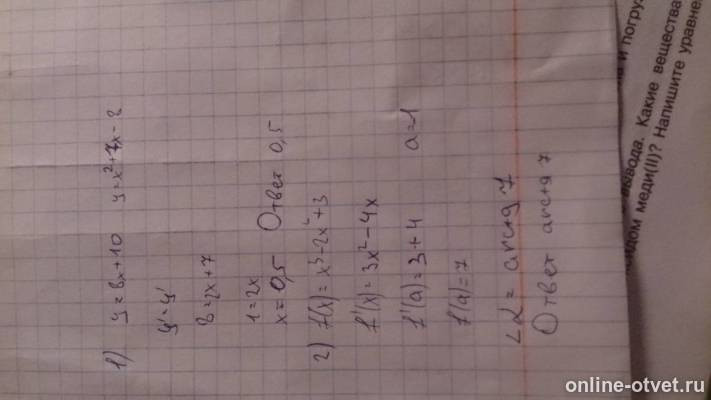 1) y=8x+10 y=x²+7x-2
y'=y'
8=2x+7
1=2x
x=0,5 Ответ 0,5
2) f(x)=x³-2x²+3
f'(x)=3x²-4x
f'(a)=3+4 a=-1
f(a)=7
∠α=arctg 7
Ответ arctg 7
и погру
вывода. Какие вещества
меди(II)? Напишите уравне
online-otvet.ru